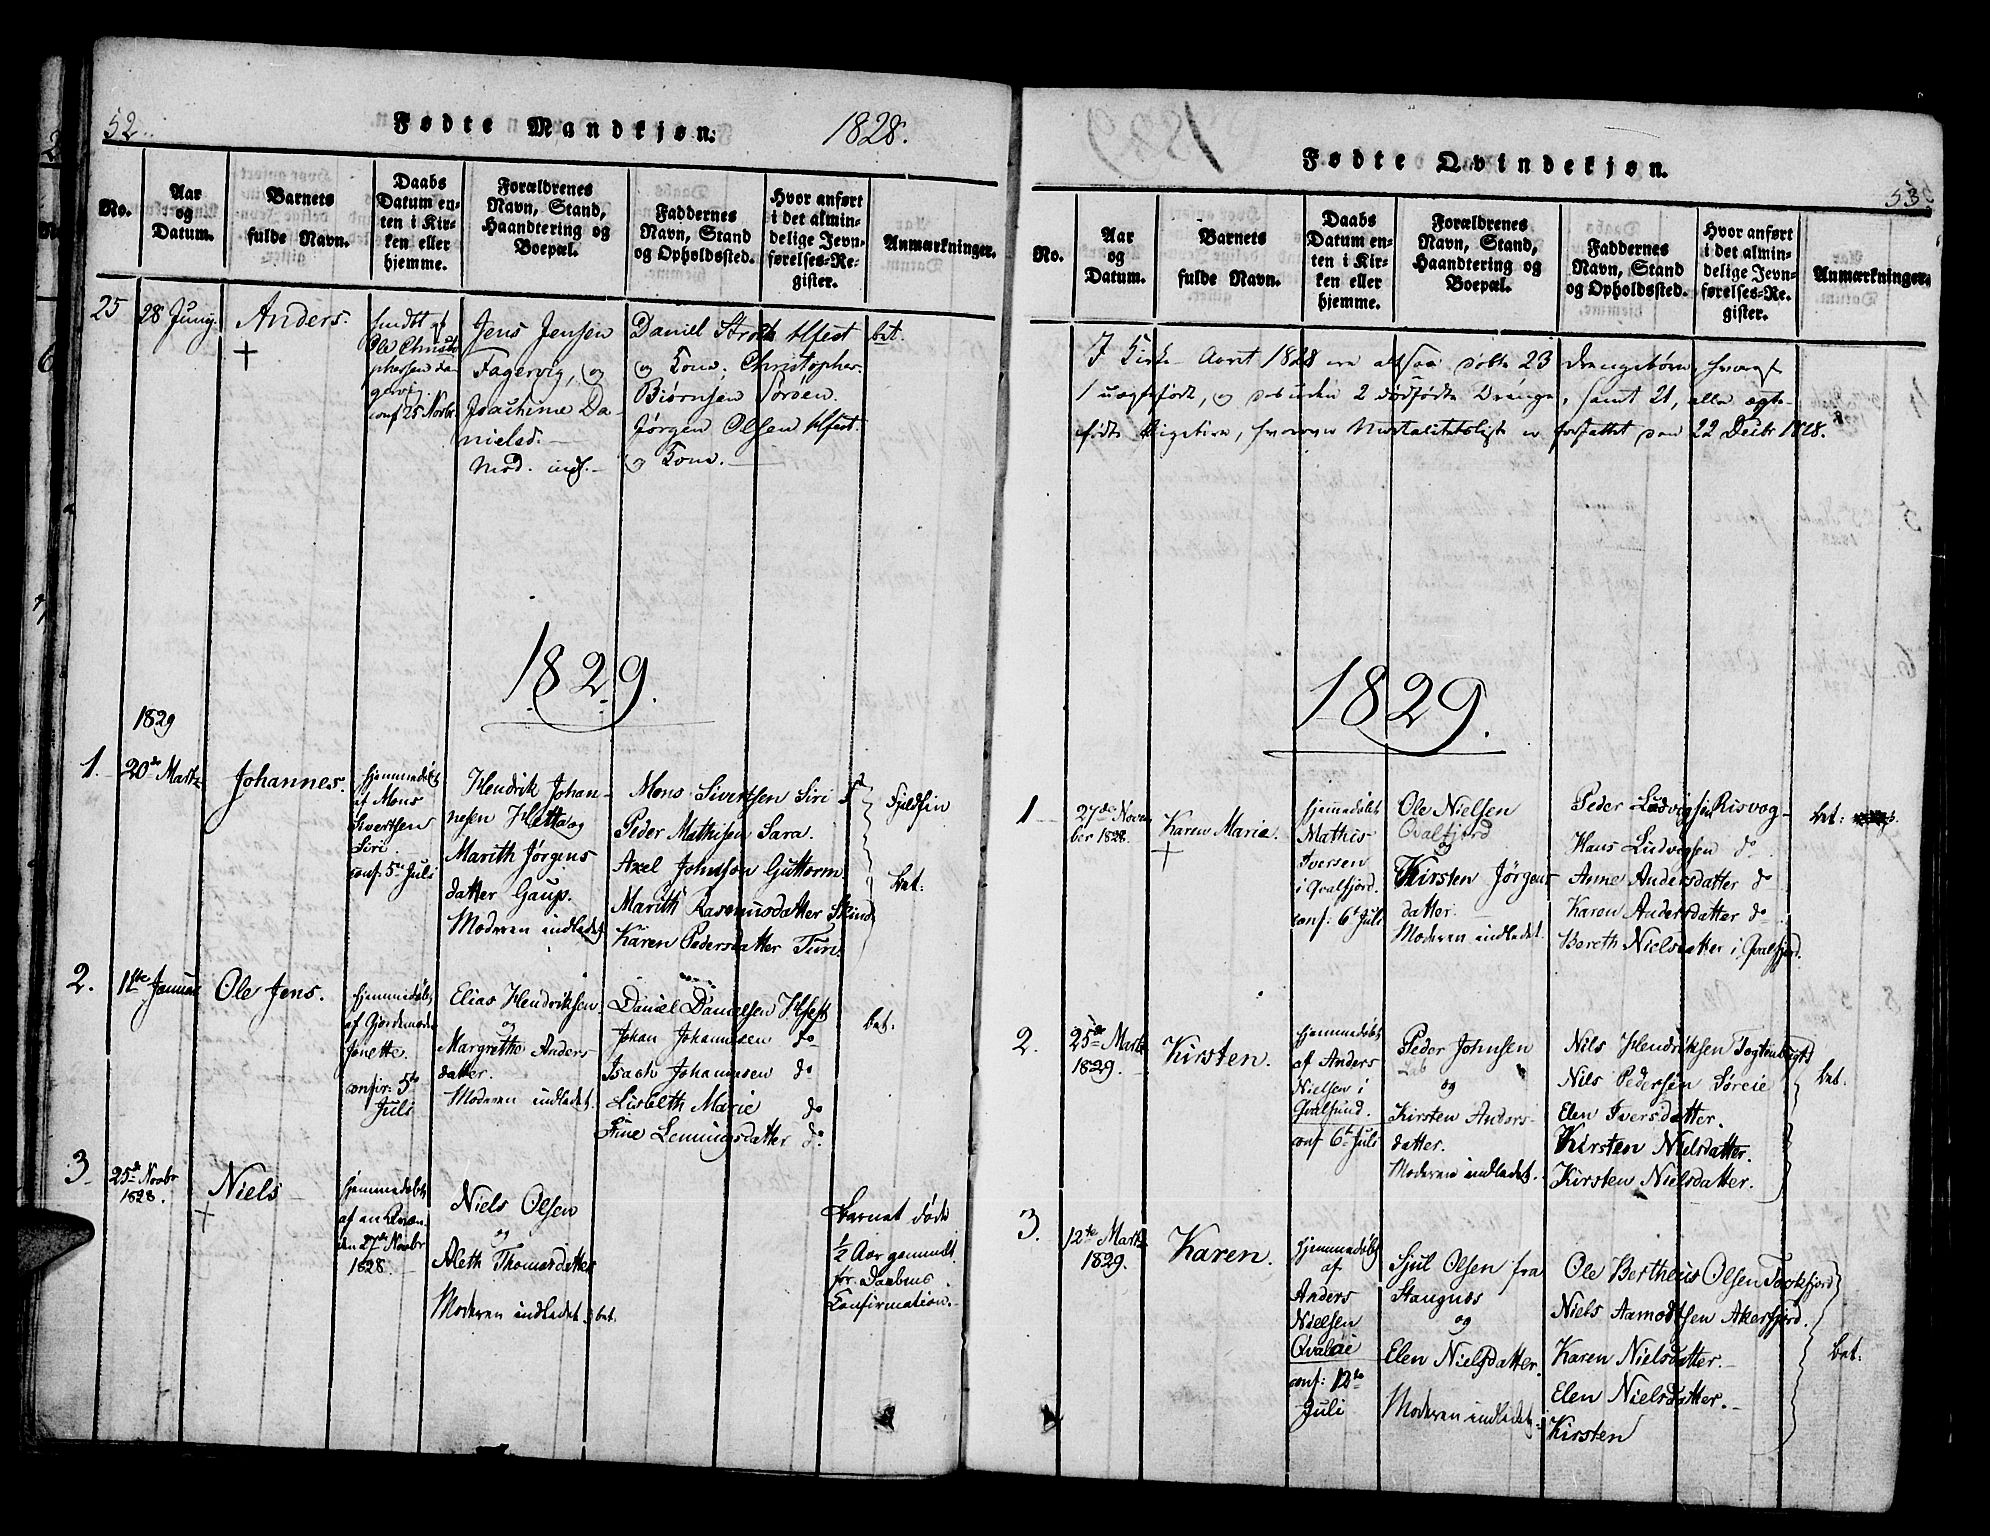 52.
Fødte Mandkjøn.
1828.
No.
Aar
og
Datum.
Barnets
fulde Navn.
Daabs
Datum en-
ten i Kir-
ken eller
hjemme.
Forældrenes
Navn, Stand,
Haandtering og
Boepæl.
Faddernes
Navn, Stand
og Opholdssted.
Hvor anført
i det almin-
delige Jevn-
førelses-Re-
gister.
Anmærkninger.
25
28 Juny.
Anders.
af
Ole Christo-
phersen
conf 25 Novbr
Jens Jensen
Fagervig, og
Joachime Da-
nielsd.
Mod. ind.
Daniel Hfest
og Kone, Christopher
Biørnsen Sørøen.
Jørgen Olsen Hfest.
og Kone.
bet.
1829.
1829
1.
20de Marts
Johannes.
hjemmedøbt
af Mons
Sivertsen
Siri
conf. 5te Juli
Hendrik Johan-
nesen Hetta og
Marith Jørgens
datter Gaup.
Moderen indledet
Mons Sivertsen Siri
Peder Mathisen Sara.
Axel Johnsson Guttorm.
Marith Rasmusdatter
Karen Pedersdatter
Fjeldfin
bet:
2.
11te Januar
Ole Jens.
hjemmedøbt
af Gjordemoder
Jonette.
confir: 5te
Juli
Elias Hendriksen
og
Margrethe Anders
datter.
Moderen indledet.
Daniel Danielsen Hfest
Johan Johannesen do
Isach Johannesen do
Lisbeth Marie do
Fine Lemmingsdatter do
bet:
3.
25de Novbr
1828.
Niels
hjemmedøbt
af en
den 27de Novbr
1828.
Niels Olsen
og
Aleth Thomasdatter
Moderen indledet. bet.
Barnet døde
½ Aar gammelt
før Daabens
Confirmation.
Fødte Qvindekjøn.
53
No.
Aar
og
Datum.
Barnets
fulde Navn.
Daabs
Datum en-
ten i Kir-
ken eller
hjemme.
Forældrenes
Navn, Stand,
Haandtering og
Boepæl.
Faddernes
Navn, Stand
og Opholdssted.
Hvor anført
i det almin-
delige Jevn-
førelses-Re-
gister.
Anmærkninger.
I Kirke-Aaret 1828 ere altsaa døbte 23 Drengebørn, hvoraf
1 uægtefødt, og desuden 2 dødfødte Drenge, samt 21, alle ægte-
fødte Pigebørn, hvorover Mortalitetsliste er forfattet den 22 Decbr 1828.
1829.
1
27de Novem
ber 1828.
Karen Marie.
hjemmedøbt
Mathis
Iversen
i Qvalfjord.
conf. 6te Juli
Ole Nielsen
Qvalfjord
og
Kirsten Jørgens
datter.
Moderen indledet.
Peder Ludvigsen Risvog
Hans Ludvigsen do
Anne Andersdatter do
Karen Andersdatter do
Bereth Nielsdatter i Qvalfjord.
bet:
2.
25de Marts
1829.
Kirsten.
hjemmedøbt
af Anders
Nielsen i
Qvalsund.
conf 6te Juli
Peder Johnsen
og
Kirsten Anders-
datter.
Moderen indledet.
Nils Hendriksen
Nils Pedersen Søreie
Elen Iversdatter.
Kirsten Nielsdatter.
Kirsten Nielsdatter.
bet.
3.
12te Marts
1829.
Karen.
hjemmedøbt
af
Anders
Nielsen
Qvaløie
conf: 12te
Juli
Sjul Olsen fra
Stangnes
og
Elen Nielsdatter.
Moderen indledet.
Ole Bertheus Olsen Torskfjord
Niels Aamodtsen Akerfjord.
Karen Nielsdatter.
Elen Nielsdatter.
Kirsten
bet: